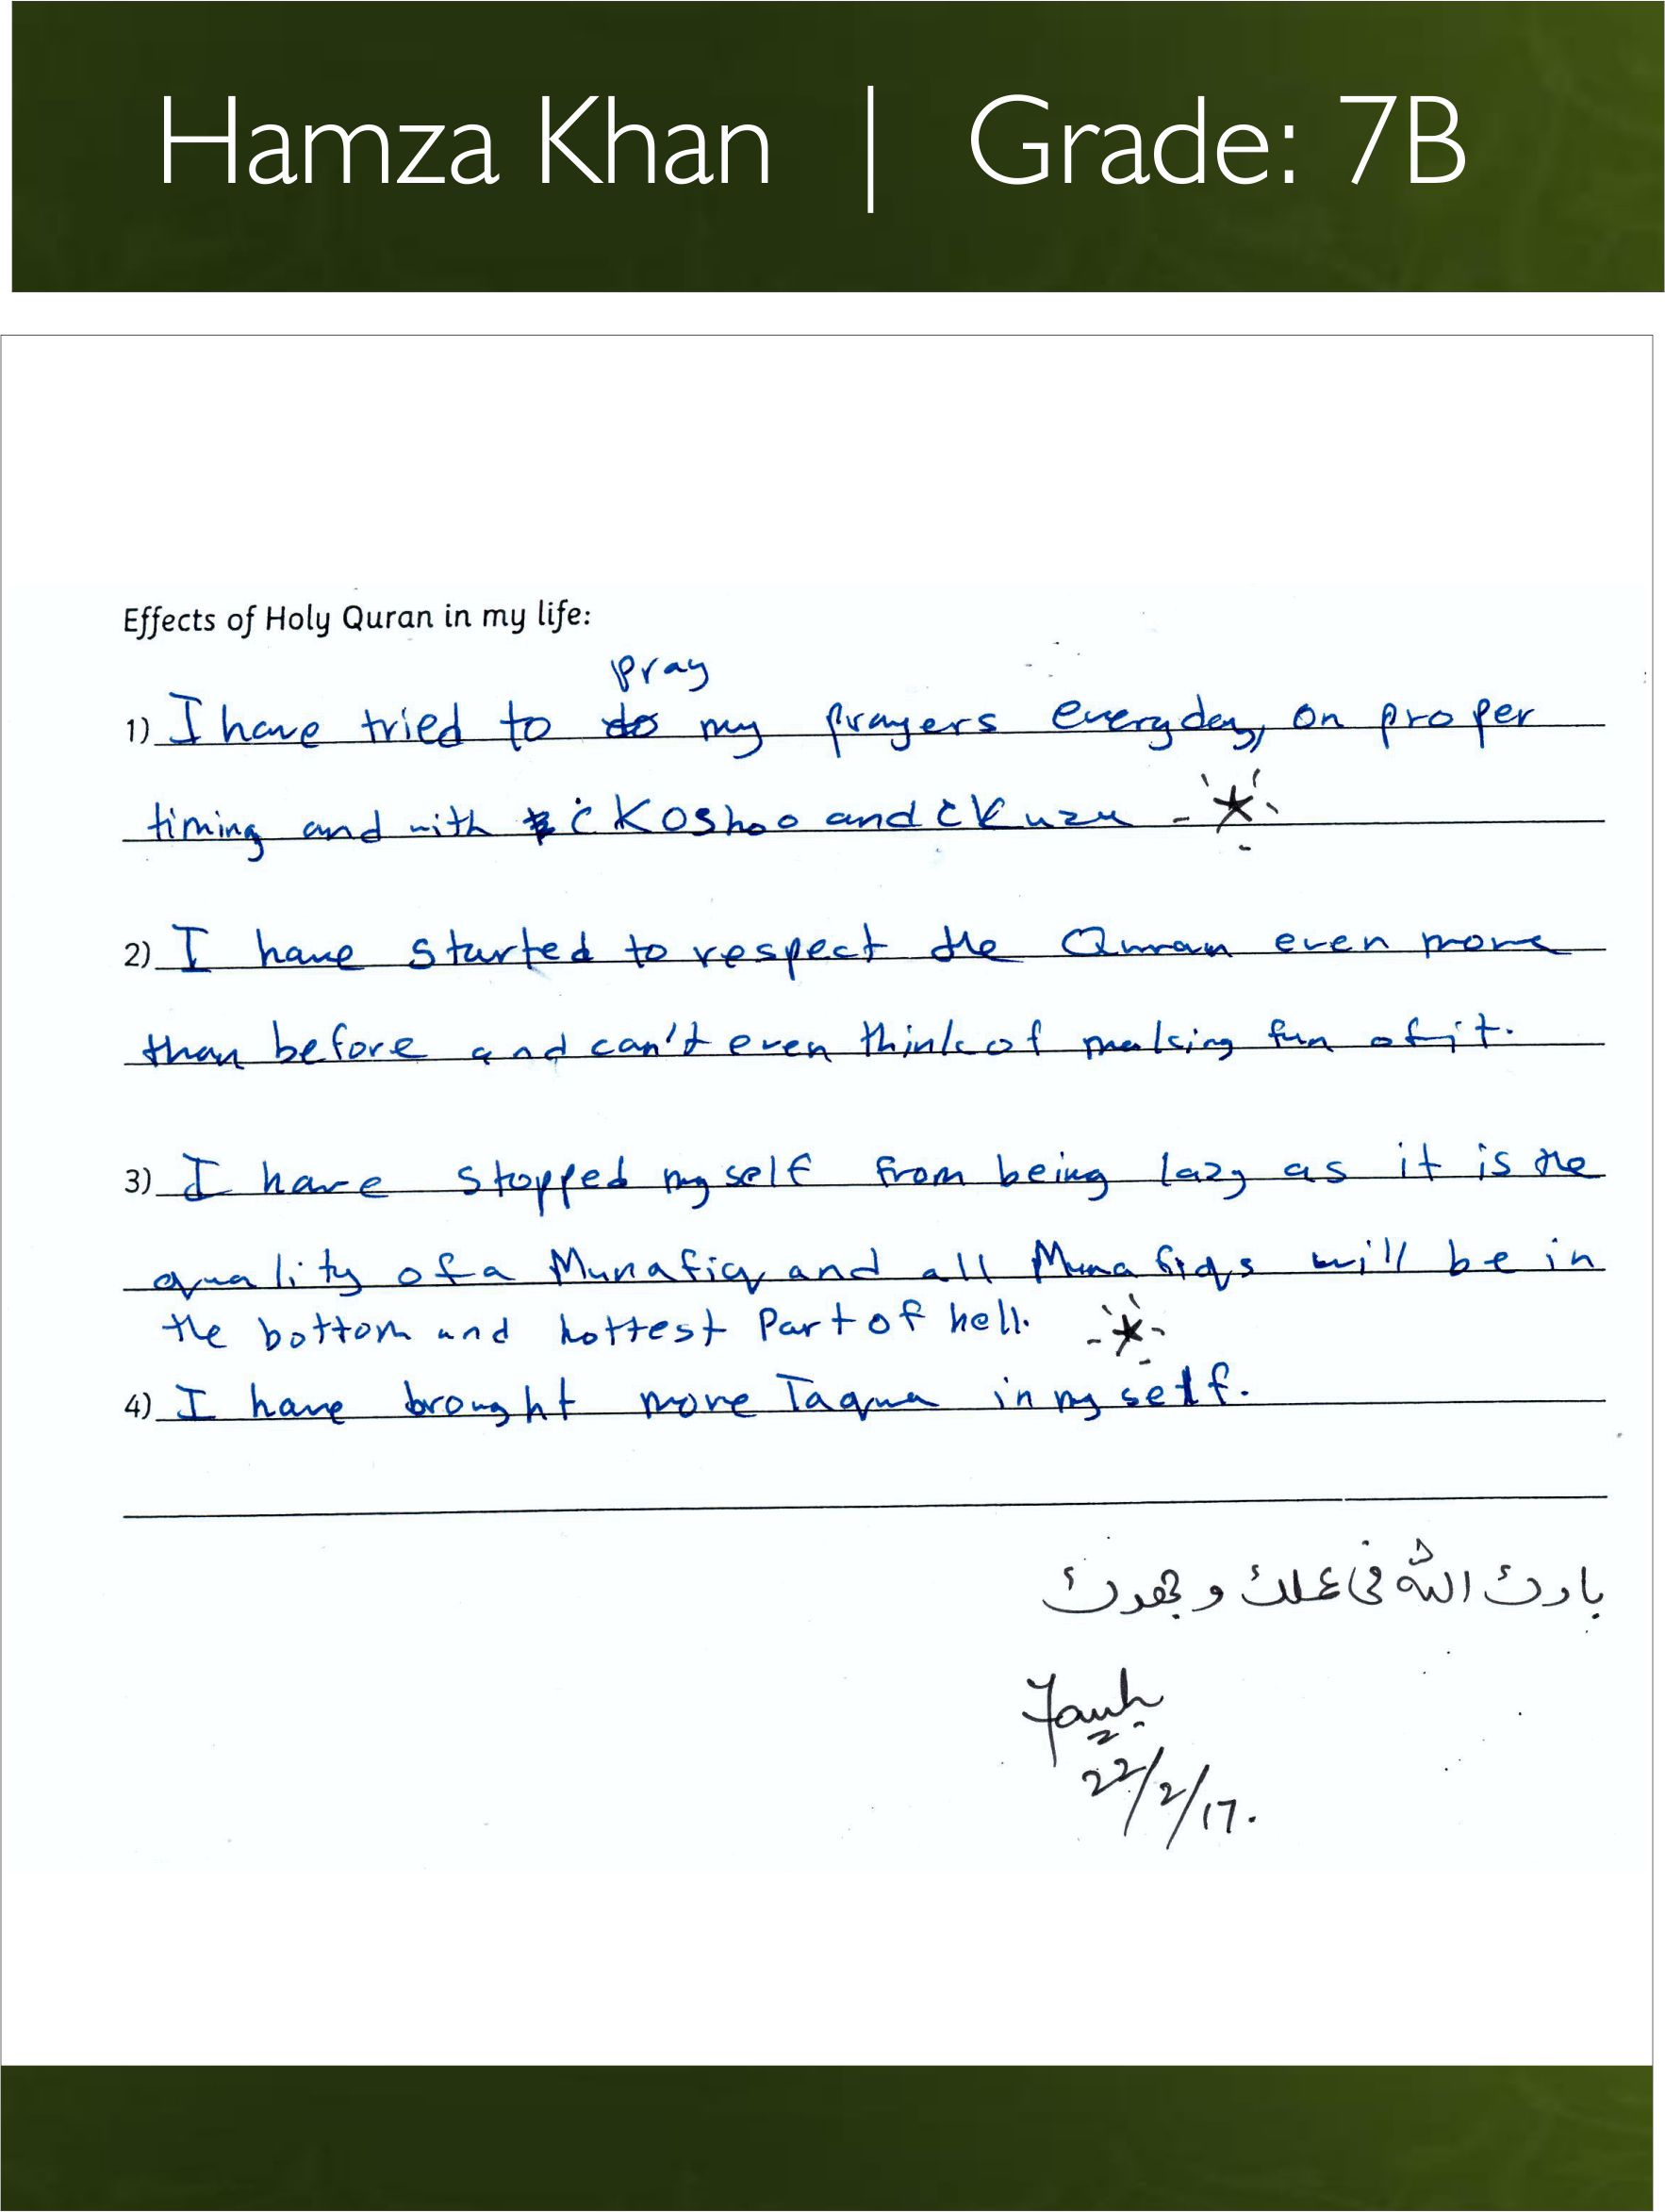 Hamza Khan | Grade: 7B
Effects of Holy Quran in my life:
pray
1) I have tried to do my prayers everyday, on proper
timing and with Koshoo and
2) I have started to respect the Quran even more
than before and can't even think of making fun of it.
3) I have stopped myself from being lazy as it is the
quality of a Munafiq and all Munafiqs will be in
the bottom and hottest Part of hell.
4) I have brought more Taqua in myself.
بارك اللّٰه في عملك و جهدك
22/2/17.